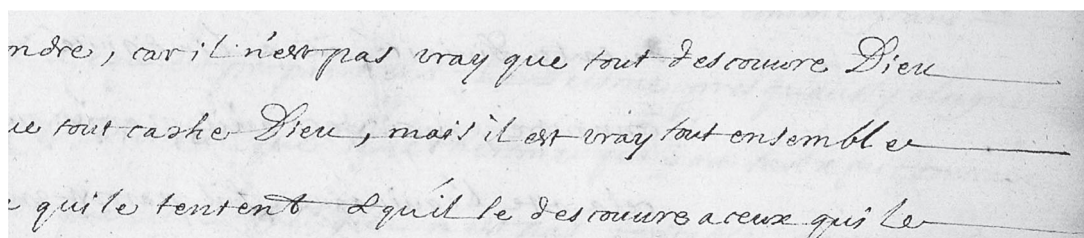 ndre, car il n'est pas vray que tout descouvre Dieu
ue tout cache Dieu, mais il est vray tout ensemble
e qui le tentent & qu'il le descouure a ceux qui le